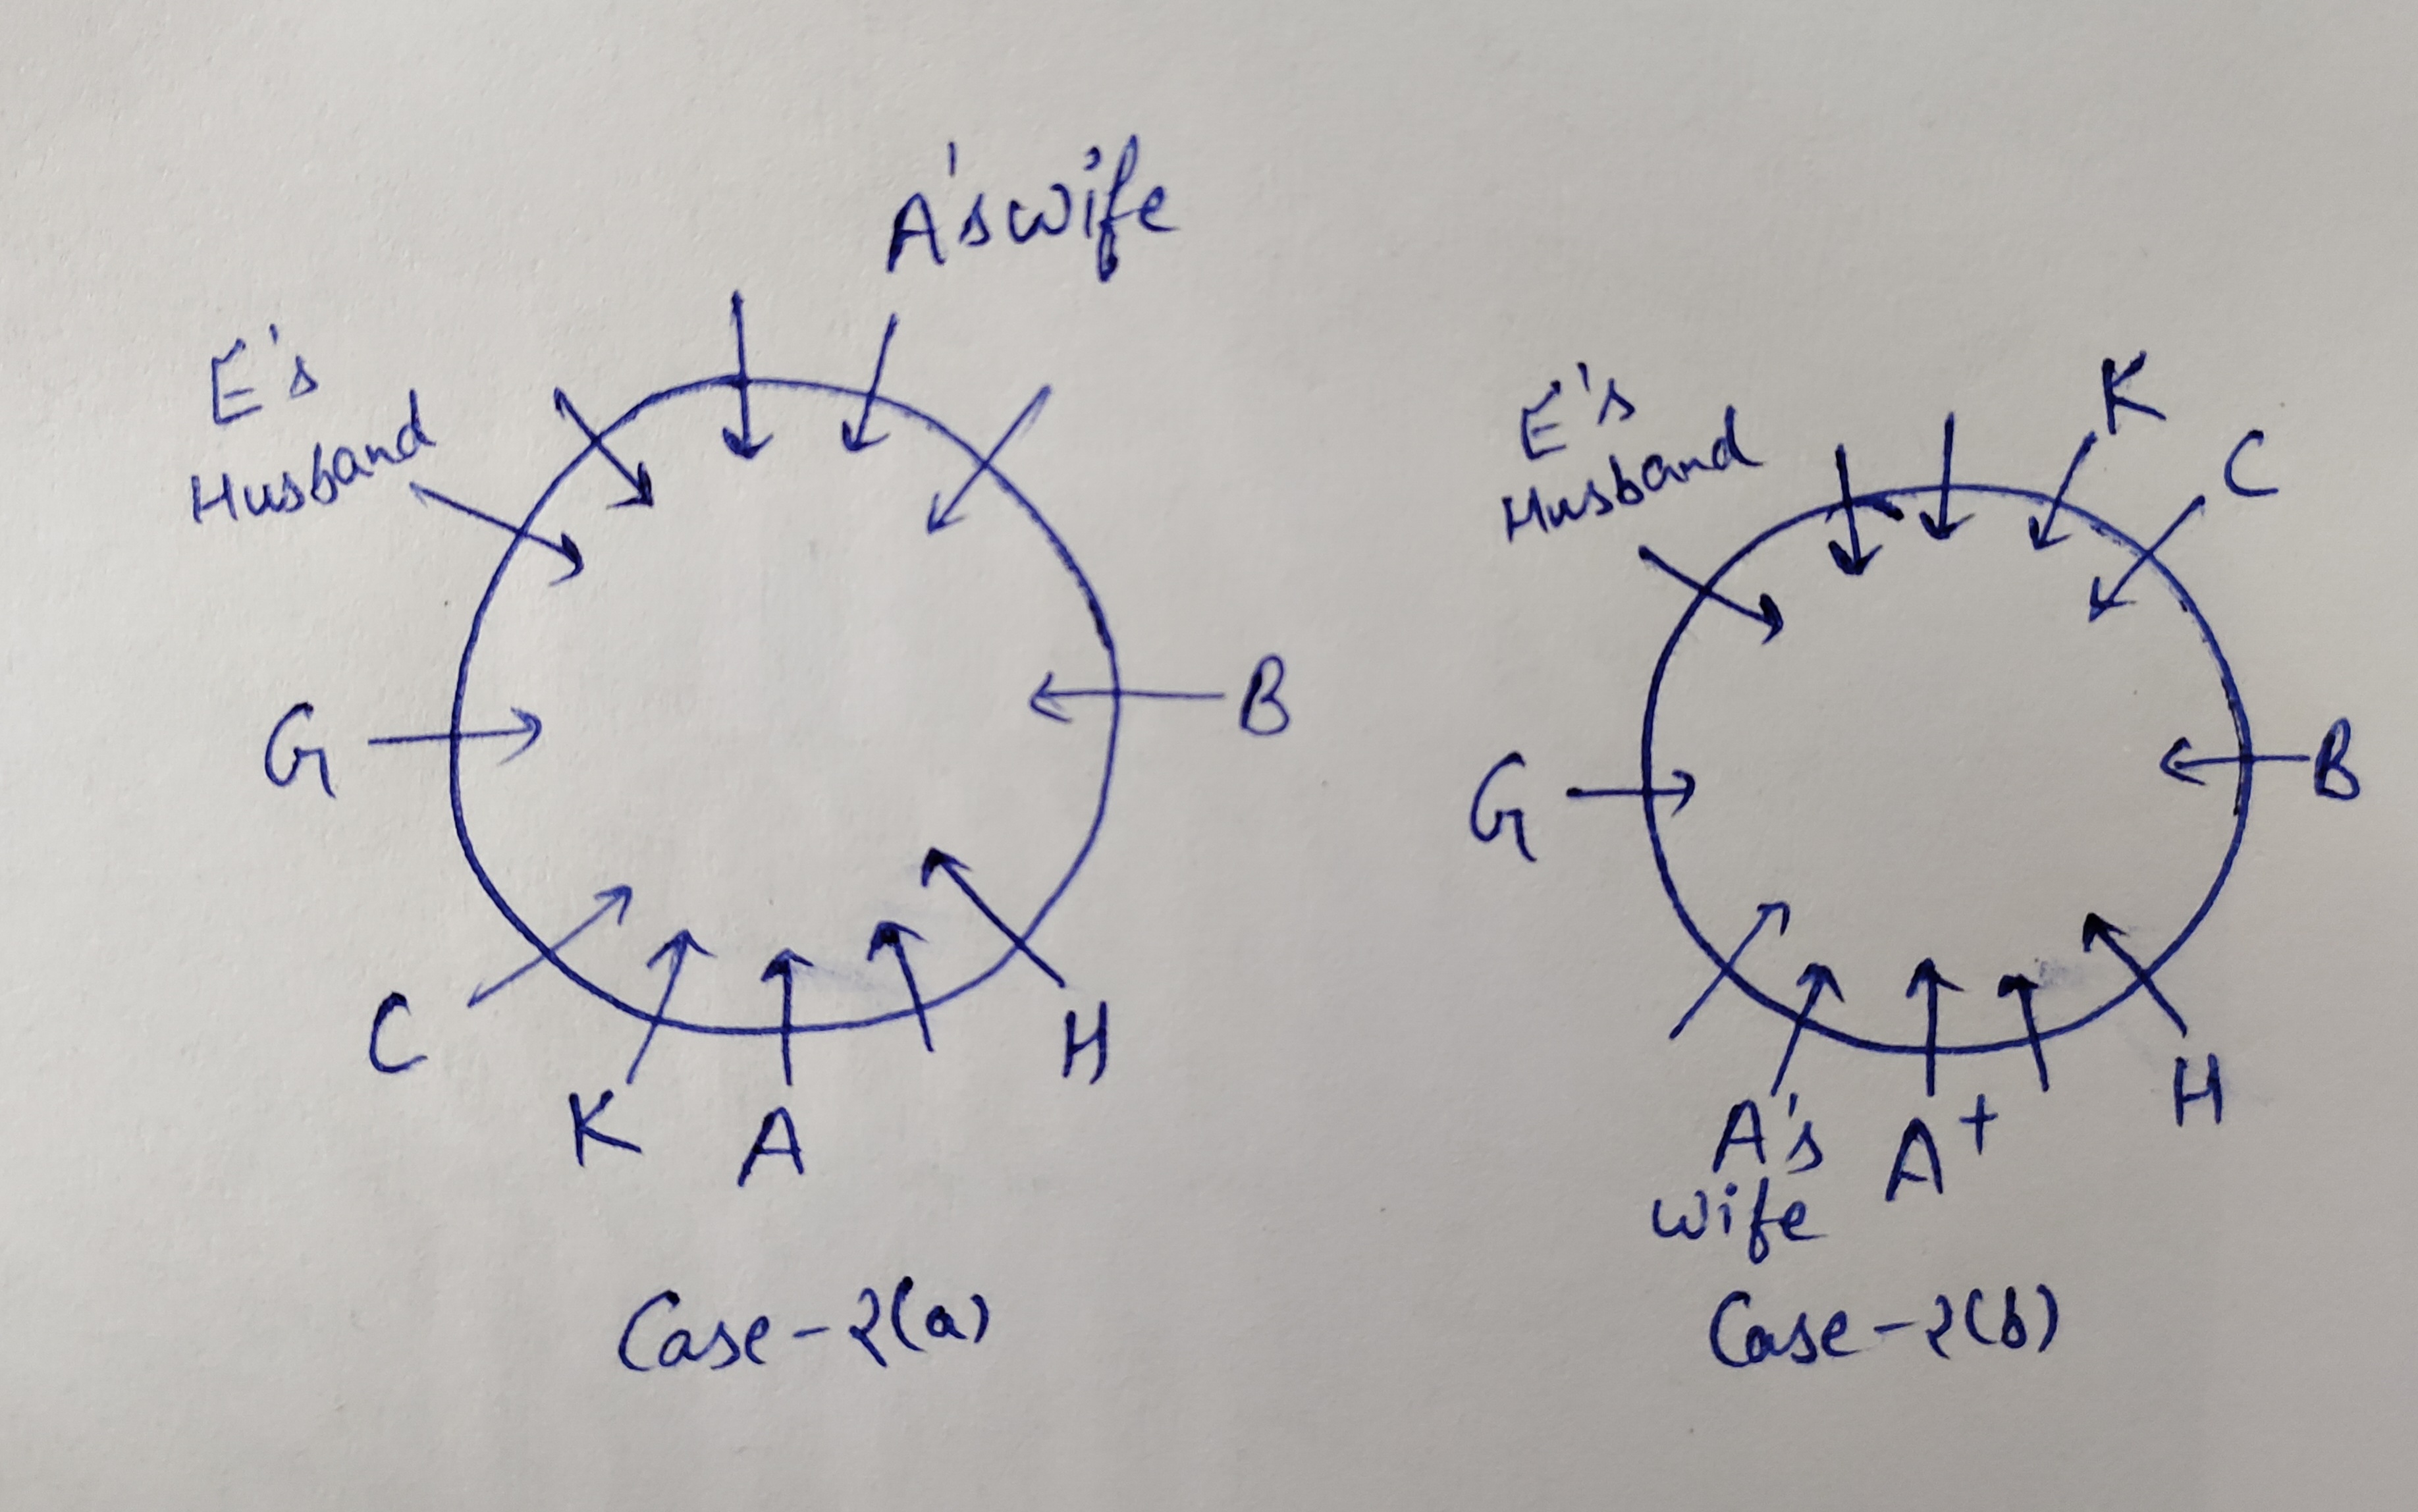 A's wife
E's
Husband
G
B
C
K
A
H
Case-2(a)
E's
Husband
K
C
G
B
A's
wife
A+
H
Case-2(b)